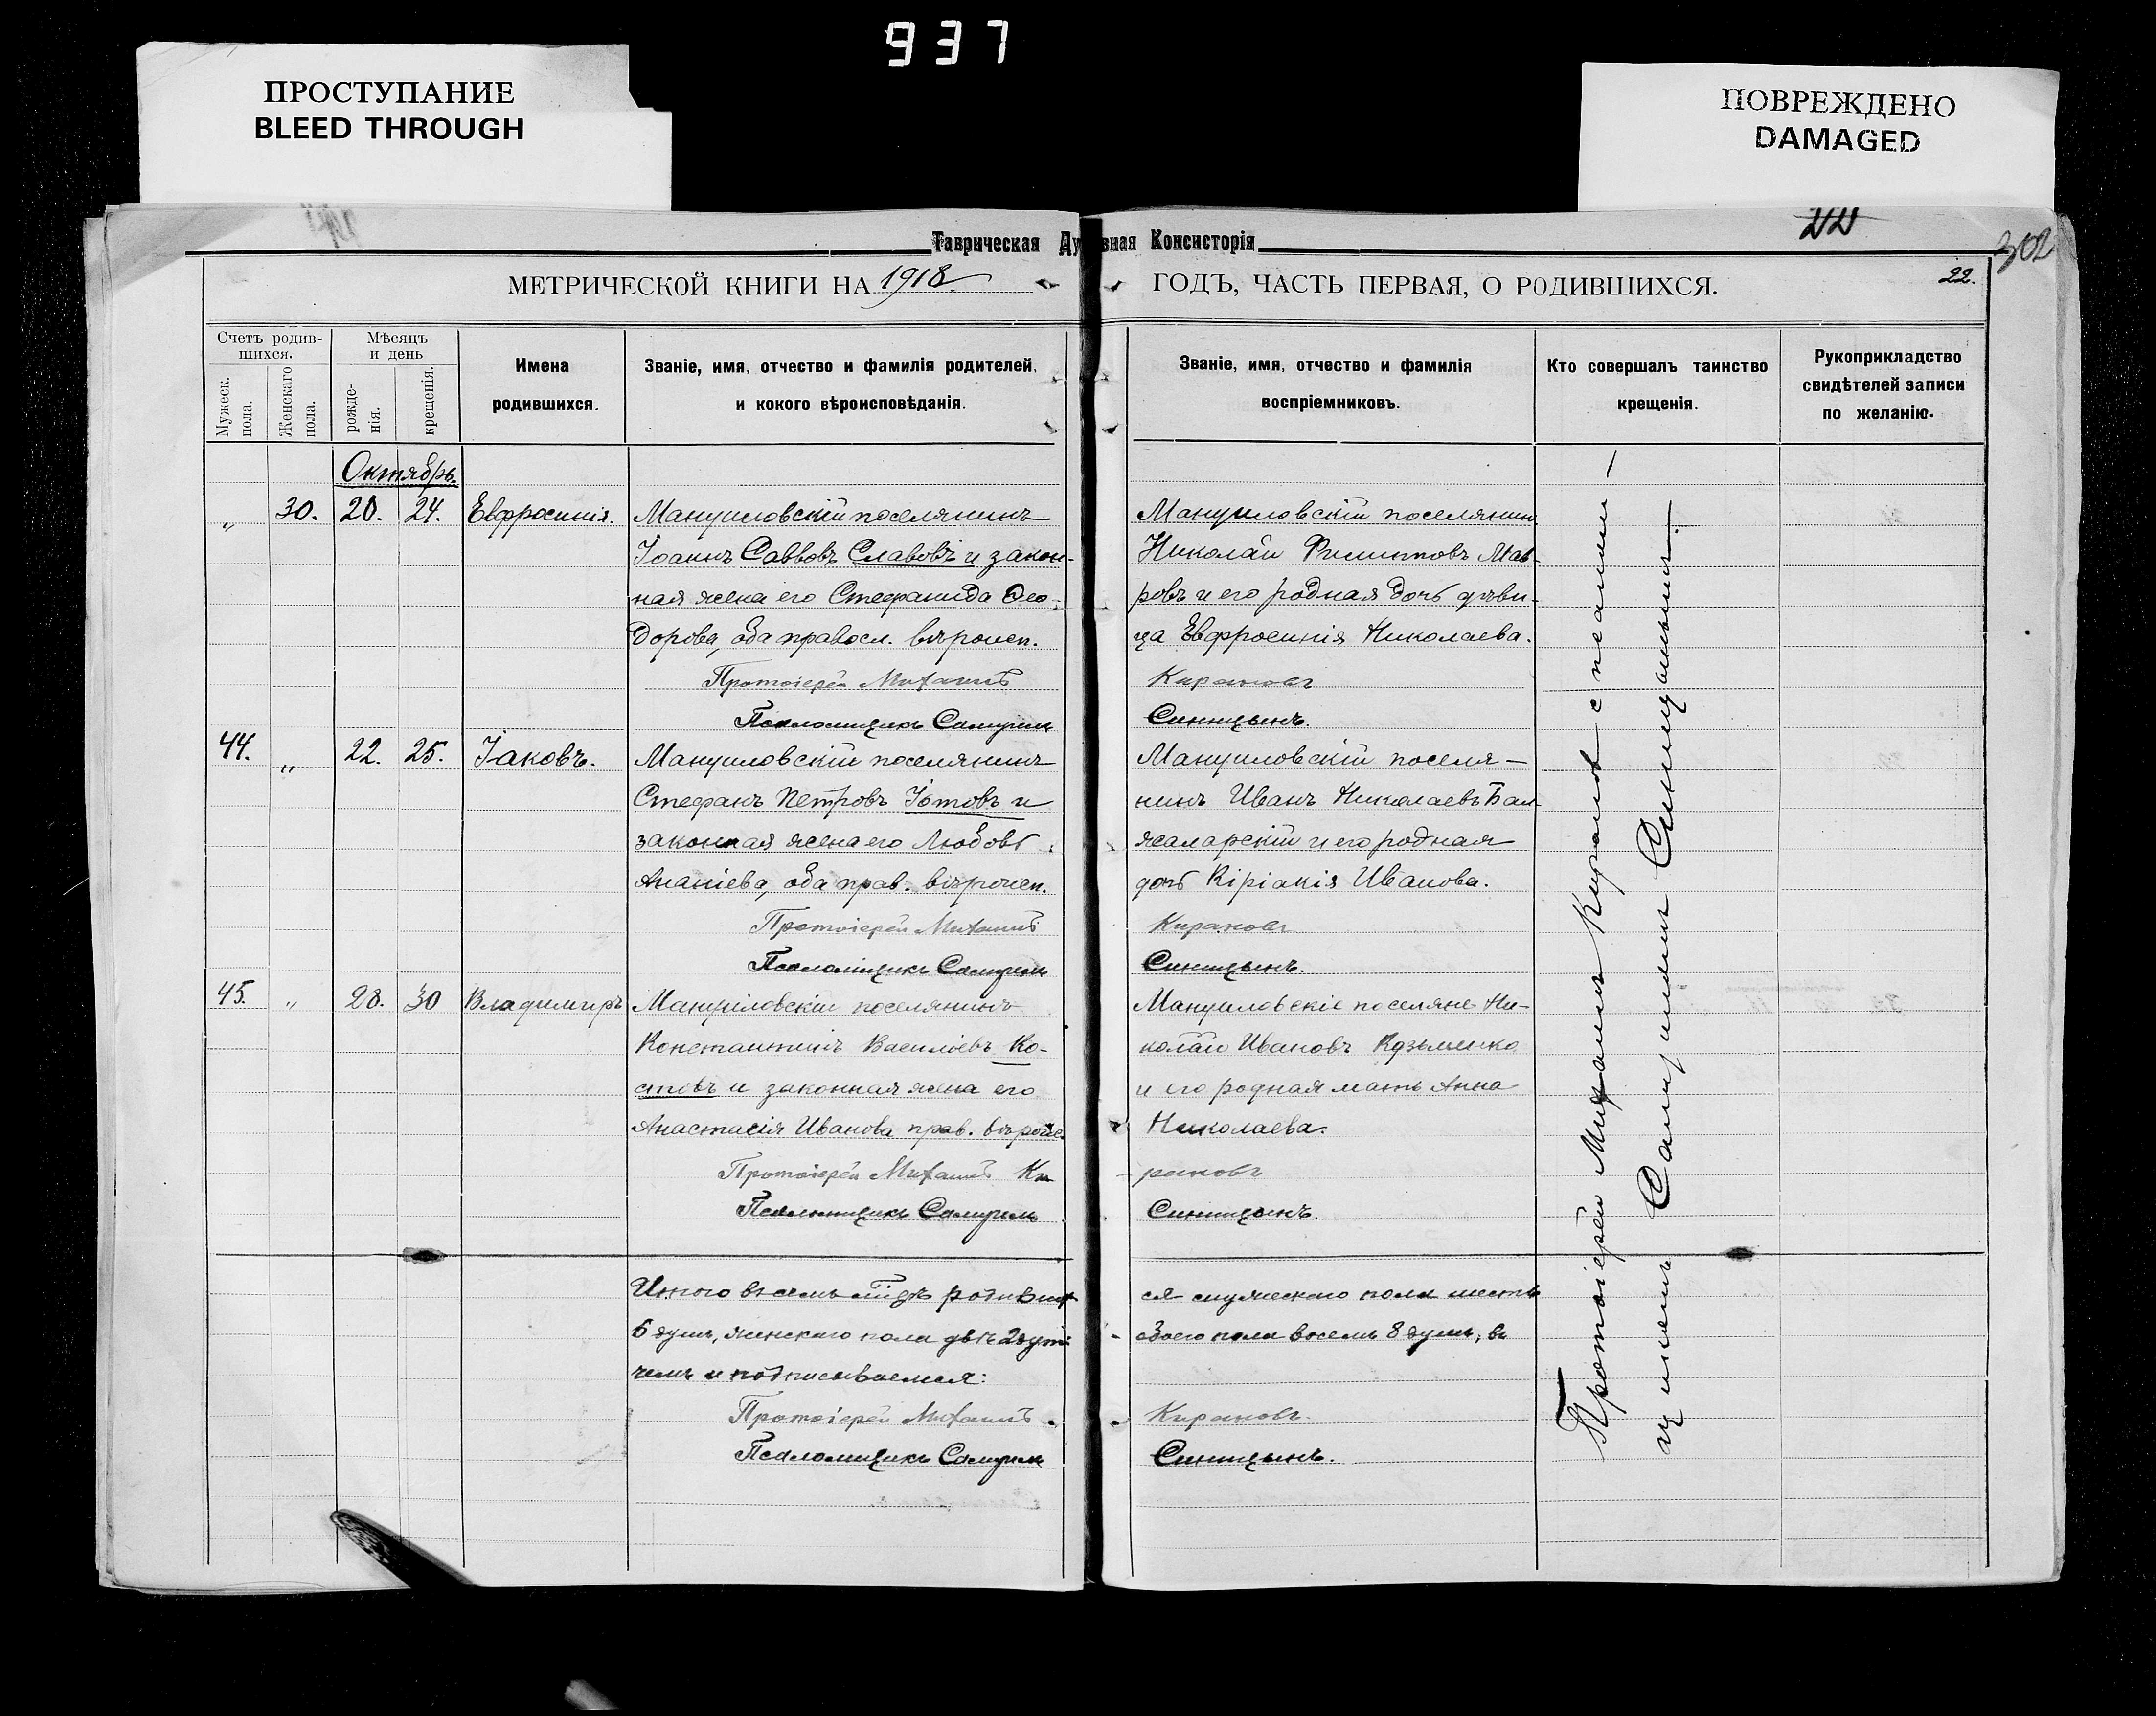 937
ПРОСТУПАНИЕ
BLEED THROUGH
ПОВРЕЖДЕНО
DAMAGED
Таврическая Ду вная Консисторія
302
МЕТРИЧЕСКОЙ КНИГИ НА 1918 ГОДЪ, ЧАСТЬ ПЕРВАЯ, О РОДИВШИХСЯ.
22.
Счетъ родив-
шихся.
Мужеск.
пола.
Женскаго
пола.
Мѣсяцъ
и день
рожде-
нія.
крещенія.
Имена
родившихся.
Званіе, имя, отчество и фамилія родителей,
и кокого вѣроисповѣданія.
Званіе, имя, отчество и фамилія
воспріемниковъ.
Кто совершалъ таинство
крещенія.
Рукоприкладство
свидѣтелей записи
по желанію.
Октябрь.
„ 30. 20. 24. Евфросинія.
Мануиловскій поселянинъ
Іоаннъ Саввовъ Славовъ и закон-
ная жена его Стефанида Ѳео-
дорова, оба правосл. вѣроисп.
Протоіерей Михаилъ
Псаломщикъ Самуилъ
Мануиловскій поселянинъ
Николай Филипповъ Мав-
ровъ и его родная дочь дѣви-
ца Евфросинія Николаева.
Кирановъ
Синицынъ.
44. „ 22. 25. Іаковъ.
Мануиловскій поселянинъ
Стефанъ Петровъ Іотовъ и
законная жена его Любовь
Ананіева, оба прав. вѣроисп.
Протоіерей Михаилъ
Псаломщикъ Самуилъ
Мануиловскій поселя-
нинъ Иванъ Николаевъ Бал-
жаларскій и его родная
дочь Киріакія Иванова.
Кирановъ
Синицынъ.
45. „ 28. 30 Владимиръ
Мануиловскій поселянинъ
Константинъ Васильевъ Ко-
стовъ и законная жена его
Анастасія Иванова прав. вѣроис.
Протоіерей Михаилъ Ки-
Псаломщикъ Самуилъ
Мануиловскіе поселяне Ни-
колай Ивановъ Кузьменко
и его родная мать Анна
Николаева.
рановъ
Синицынъ.
Итого въ семъ родивших
6 душ, женскаго пола двѣ 2 души
чемъ и подписываемся:
Протоіерей Михаилъ
Псаломщикъ Самуилъ
ся мужескаго пола шесть
обоего пола восемь 8 душъ, въ
Кирановъ.
Синицынъ.
Протоіерей Михаилъ Кирановъ с псалом-
щикомъ Самуиломъ Синицынымъ.